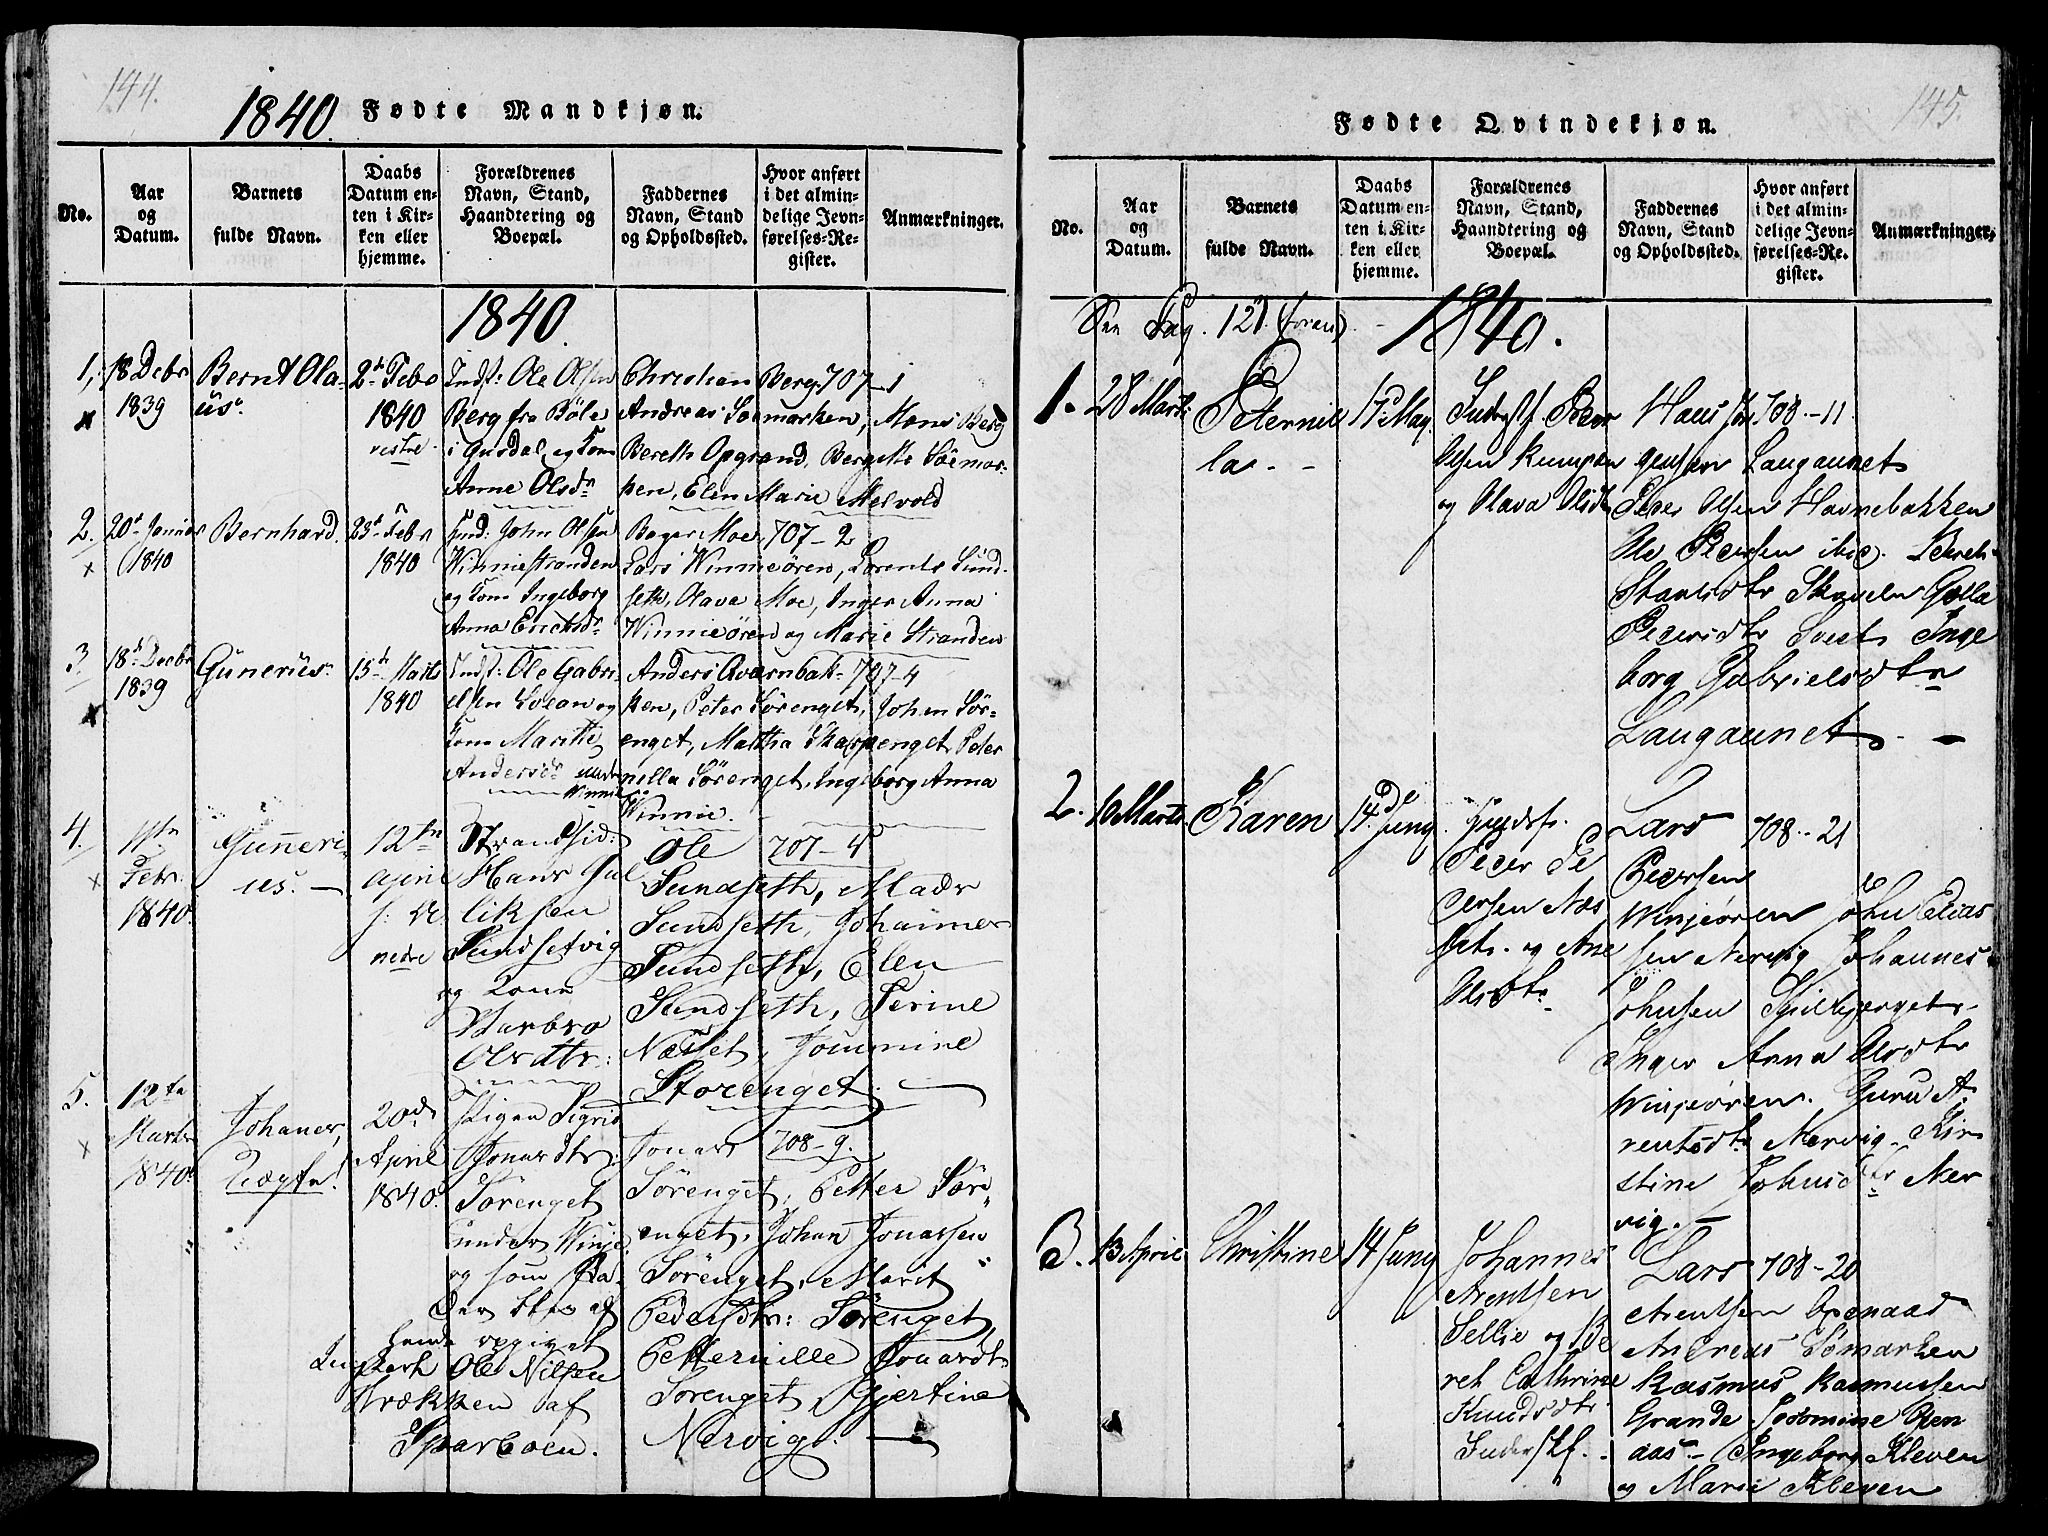 144.
1840. Fødte Mandkjøn.
No.
Aar
og
Datum.
Barnets
fulde Navn.
Daabs
Datum en-
ten i Kir-
ken eller
hjemme.
Forældrenes
Navn, Stand,
Haandtering og
Boepæl.
Faddernes
Navn, Stand
og Opholdssted.
Hvor anført
i det almin-
delige Jevn-
førelses-Re-
gister.
Anmærkninger.
1840.
1,
18 Debr
1839
Bernt Ola-
us.
2d Febr
1840
Indst: Ole Olsen
Berg fra Böle
Anne Olsdr
Christian Berg. 707-1
Andreas Söemarken, Mons Berg
Bereth Opgrand, Bergitte Söemar-
ken, Elen Marie Melvold
2.
x
20d Januar
1840
Bernhard.
23d Febr
1840
Ind: John Olsen
Winniestranden
og Kone Ingeborg
Anna Erichsdr
Roger Moe 707-2
Lars Winnieören, Lorents Sund-
seth, Olava Moe, Inger Anna
Winnieören og Marie Stranden
3.
x
18d Decbr
1839
Gunerius
15d Marts
1840
Indst: Ole Gabri-
elsen Svean og
Kone Marith
Andersdr under
Winnie
Anders Qværnbak- 707-4
ken, Peter Sörenget, Johan Sör-
enget, Martha Skarpenget, Peter
nella Sörenget, Ingeborg Anna
Winnie.
4.
x
11te
Febr:
1840.
Gunneri-
us. —
12te
April
nedre
Strandsid:
Hans Jul
liksen
Sundsetvig
og Kone
Barbro
Olsdtr:
Ole 707-4
Sundseth, Mads
Sundseth, Johannes
Sundseth, Elen
Sundseth, Serine
Næsset, Jommine
Storenget.
5.
x
12te
Marts
1840.
Johanes,
Uægte!
20de
April
1840.
Pigen Sigrid
Jonasdtr:
Sörenget
under Winje
og som Fa-
der blev af
hende opgivet
Ole Nilsen
Brækken af
Sparboen.
Jonas 708-9.
Sörenget, Petter Sör-
enget, Johan Jonassen
Sörenget, Marit
Pedersdtr: Sörenget,
Petternille Jonasdt
Sorenget, Gjertine
Nervig.
145.
Fødte Qvindekjøn.
No.
Aar
og
Datum.
Barnets
fulde Navn.
Daabs
Datum en-
ten i Kir-
ken eller
hjemme.
Forældrenes
Navn, Stand,
Haandtering og
Boepæl.
Faddernes
Navn, Stand
og Opholdssted.
Hvor anført
i det almin-
delige Jevn-
førelses-Re-
gister.
Anmærkninger.
See Pag. 121. (foran). -
1840.
1.
28 Marts
Peternil
la. - -
17 May.
Olsen
og Olava Olsdtr
Hans 708-11
Langaunet
Peder Olsen Havnebakken
Ole Pedersen ibid. Bereth
Pedersdtr Inge
borg Gabrielsdtr
Langaunet. -
2.
10 Marts.
Karen
14 Juny.
Peder Pe
dersen Næs
set. og Ane
Olsdtr
Lars 708-21
Pedersen
Winjeören John Elias
sen Nervig Johannes
Johnsen
Inger Anna Olsdtr
Winjeören. Guru A
rentsdtr Nervig. Kir
stine Johnsdtr Ner
vig. -
3.
13 April
Christine
14 Juny
Johannes
Arentsen
Sellie og Be
ret Cathrine
Knudsdtr
Inderskf.
Lars 708-20
Arentsen Openaas
Andreas Sömarken
Rasmus Rasmussen
Grande Open
aas - Ingeborg Kleven
og Marie Kleven